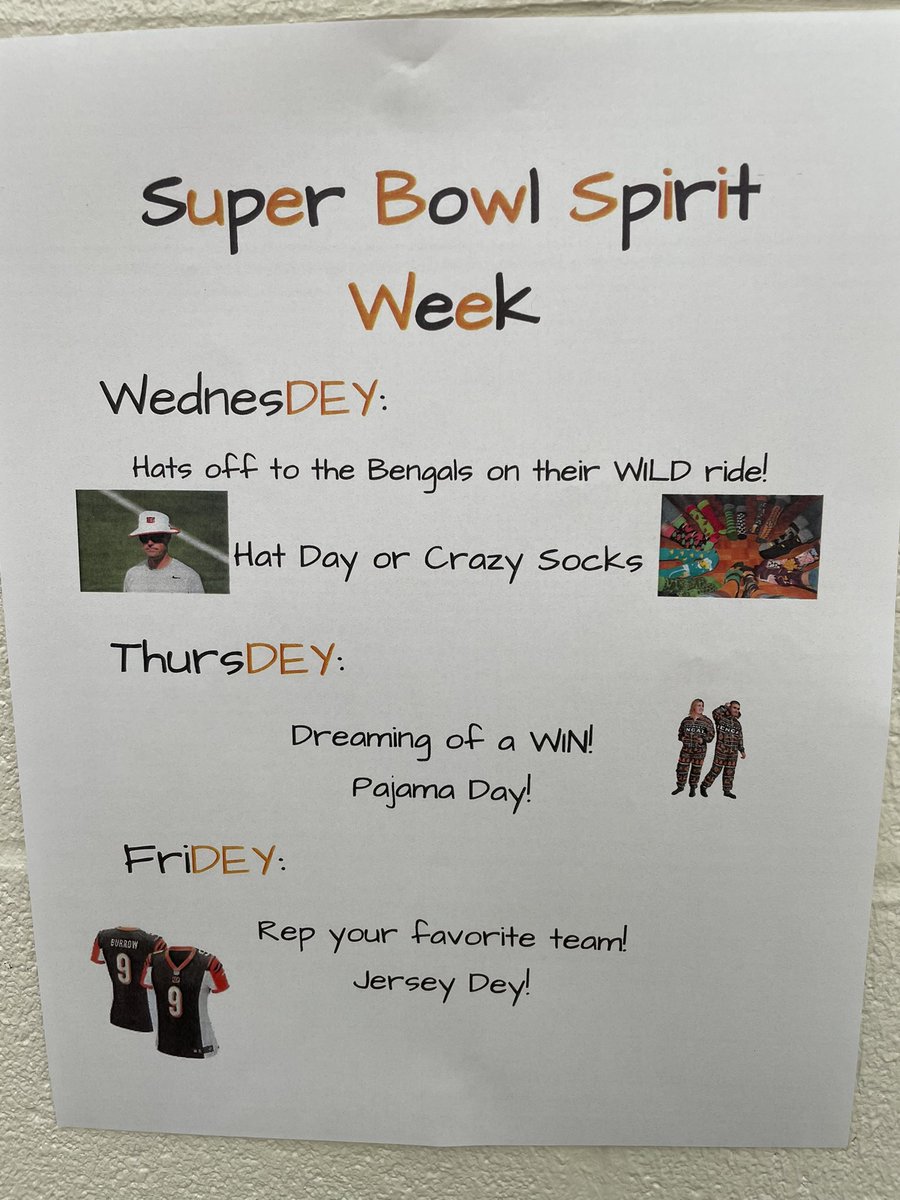 Super Bowl Spirit
Week
WednesDEY:
Hats off to the Bengals on their WILD ride!
Hat Day or Crazy Socks
ThursDEY:
Dreaming of a WIN!
Pajama Day!
FriDEY:
Rep your favorite team!
Jersey Dey!
BURROW
9
9